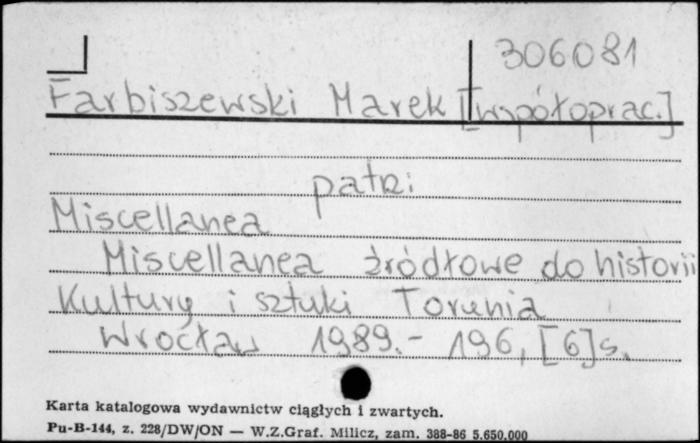 306081
Farbiszewski Marek [współoprac.]
patrz:
Miscellanea
Miscellanea źródłowe do historii
Kultury i sztuki Torunia
Wrocław 1989.- 196, [6]s.
Karta katalogowa wydawnictw ciągłych i zwartych.
Pu-B-144, z. 228/DW/ON — W.Z.Graf. Milicz, zam. 388-86 5.650.000